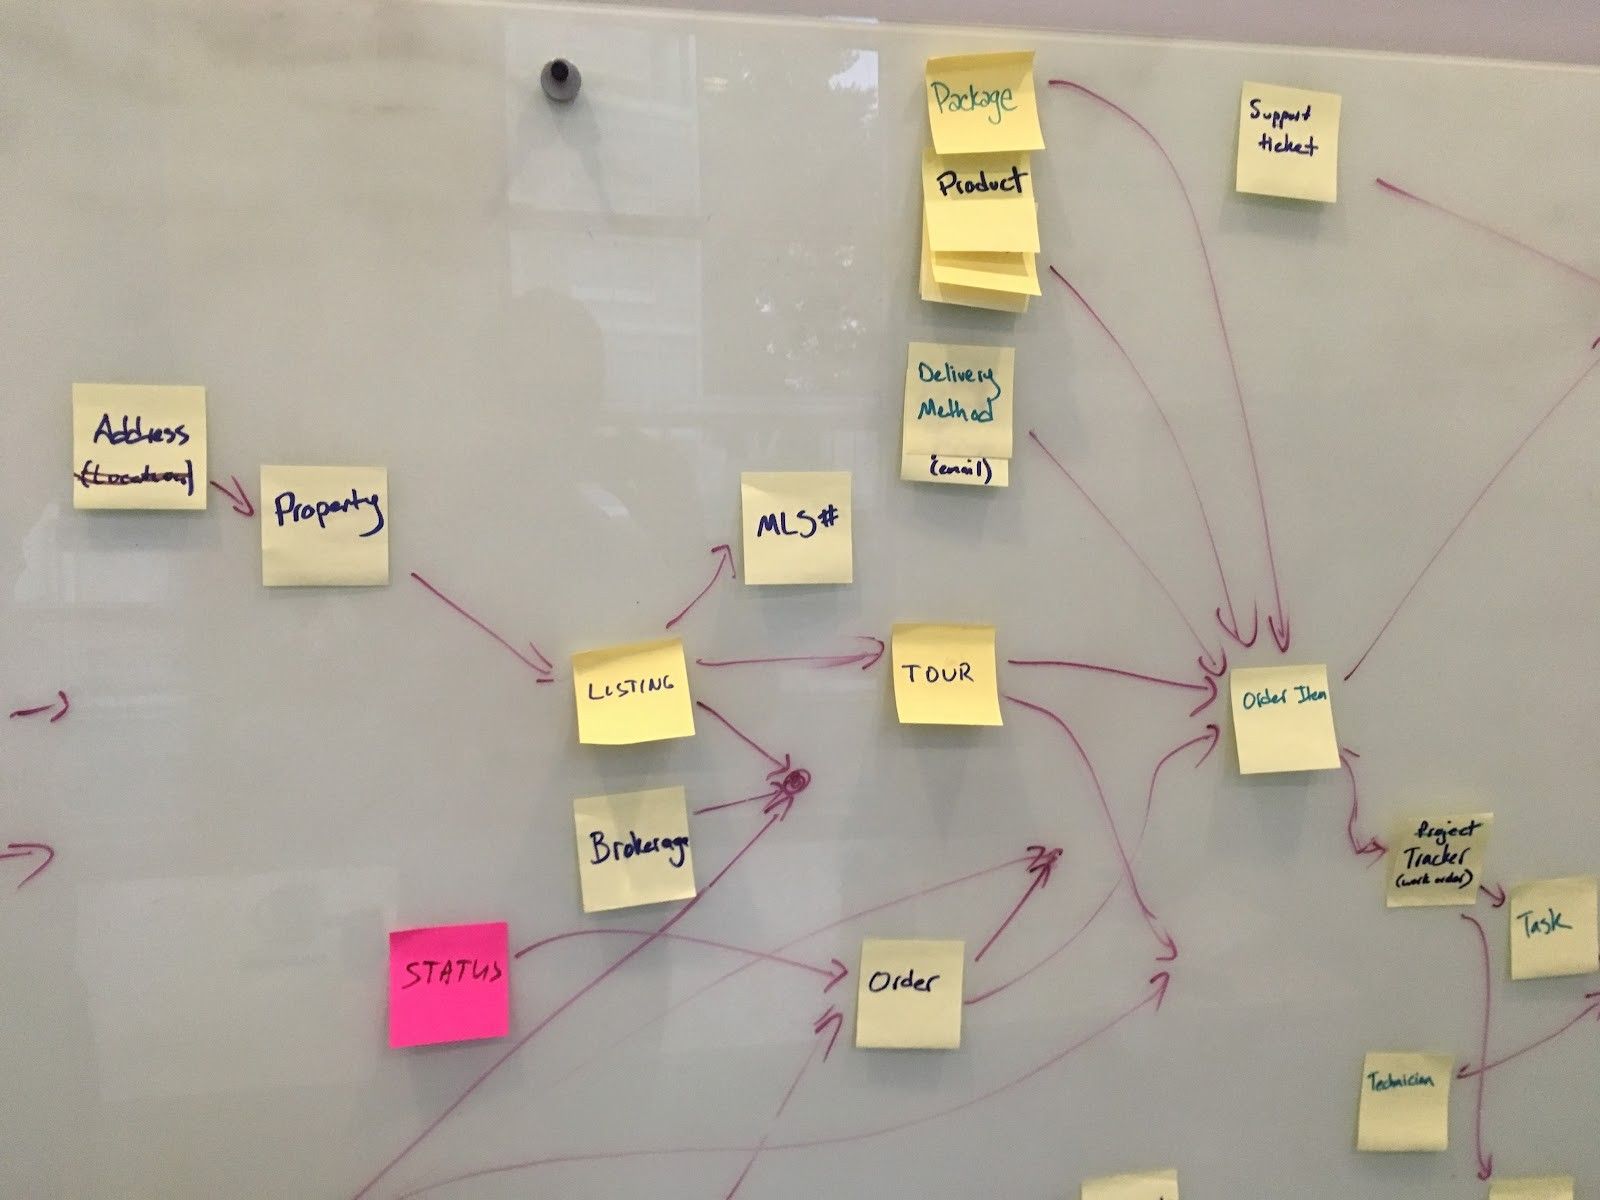 Package
Support
ticket
Product
Delivery
Method
(email)
Address
(Location)
Property
MLS#
LISTING
TOUR
Order Item
Brokerage
Project
Tracker
(work order)
Task
STATUS
Order
Technician